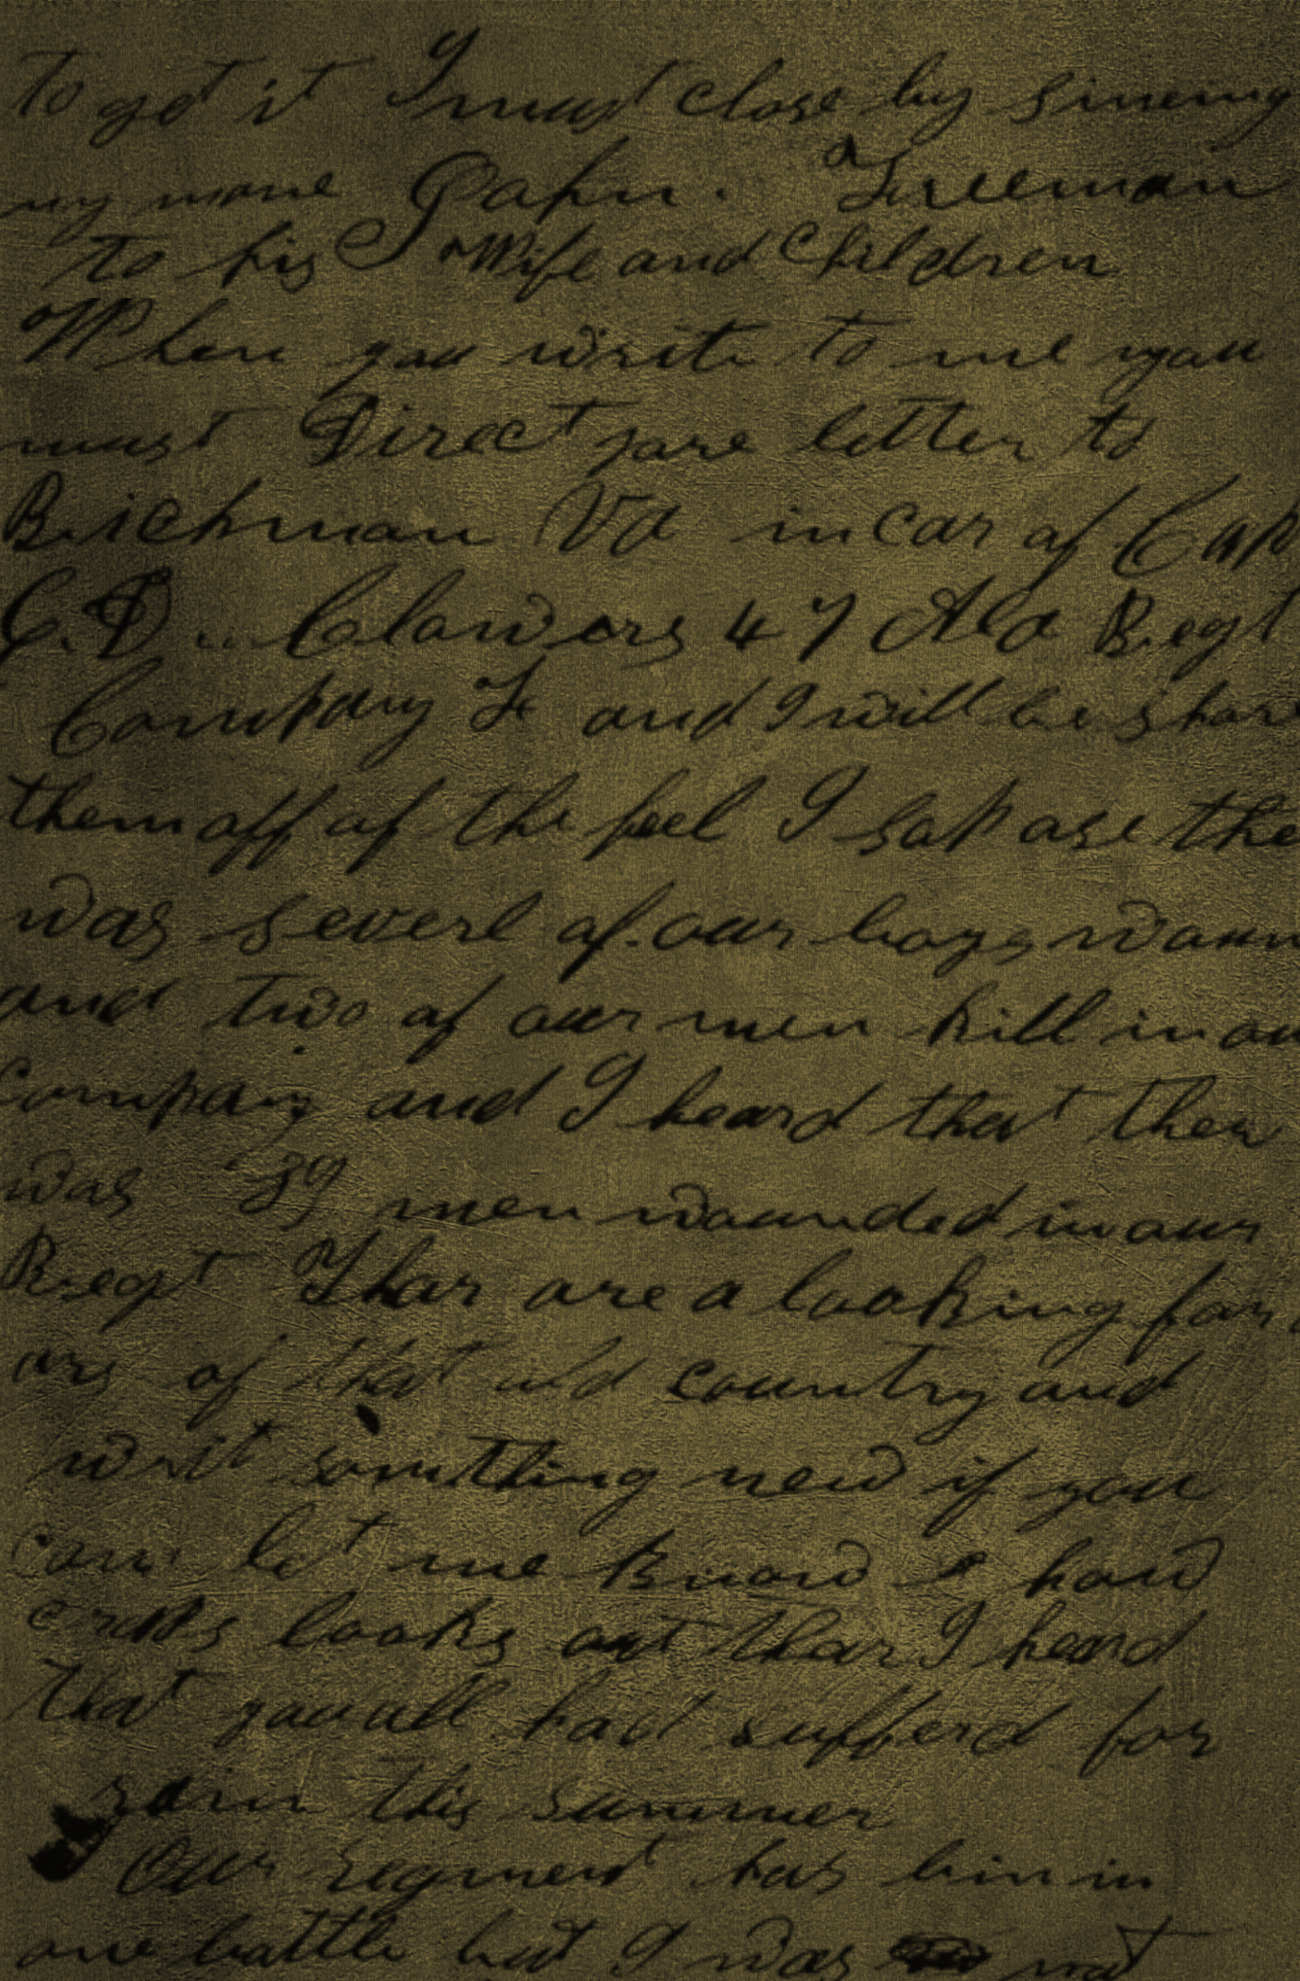 To get it I must close by sineing
my name John. Freeman
to his Wife and Children
When you write to me you
must Direct yare letter to
Richman Va in car of Cap
C. D. Clawers 47 Ala Regt
Company F and I will be shore
them off of the feel I
was severl of our boys woun
and two of our men kill in ou
Company and I heard that ther
was 39 men wounded in our
Regt Thar are a looking for
of that old country and
writ somthing new if you
can let me know how
crops looks out thar I heard
that you all had sufferd for
rain this summer
Our regment has bin in
one battle but I was not